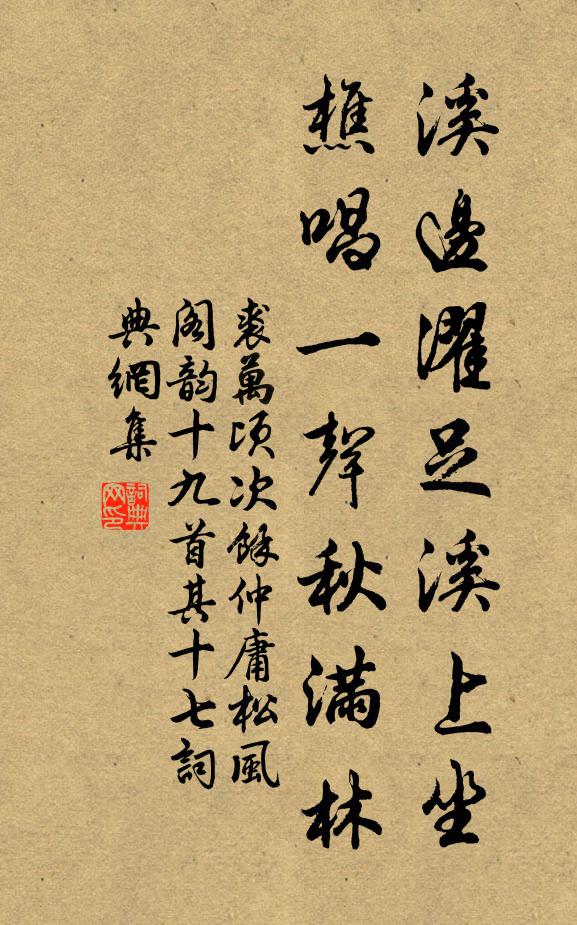 溪邊濯足溪上坐
樵唱一聲秋滿林
裘萬頃次餘仲庸松風
閣韵十九首其十七詞
典網集
詞典
网印